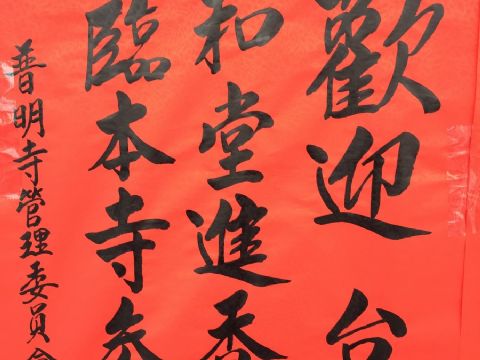 歡迎台
和堂進香
臨本寺参
普明寺管理委員會